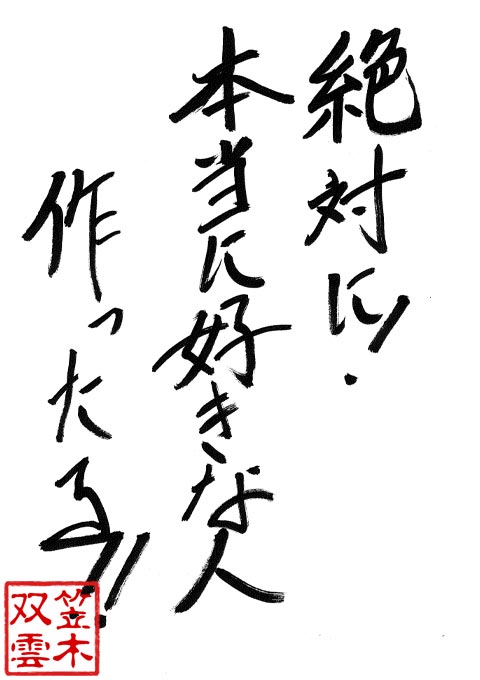 絶対に!
本当に好きな人
作ったる!!
笠木
双雲